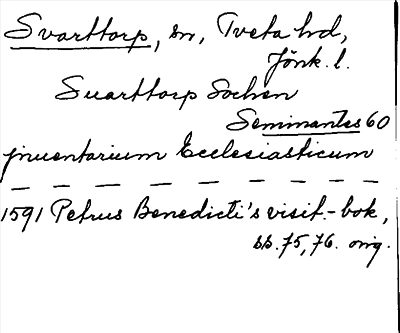 Svarttorp, sn, Tveta hd,
Jönk. l.
Suarttorp Sochen
Seminantes 60
jnuentarium Ecclesiasticum
1591 Petrus Benedicti's visit.-bok,
ss. 75, 76. orig.